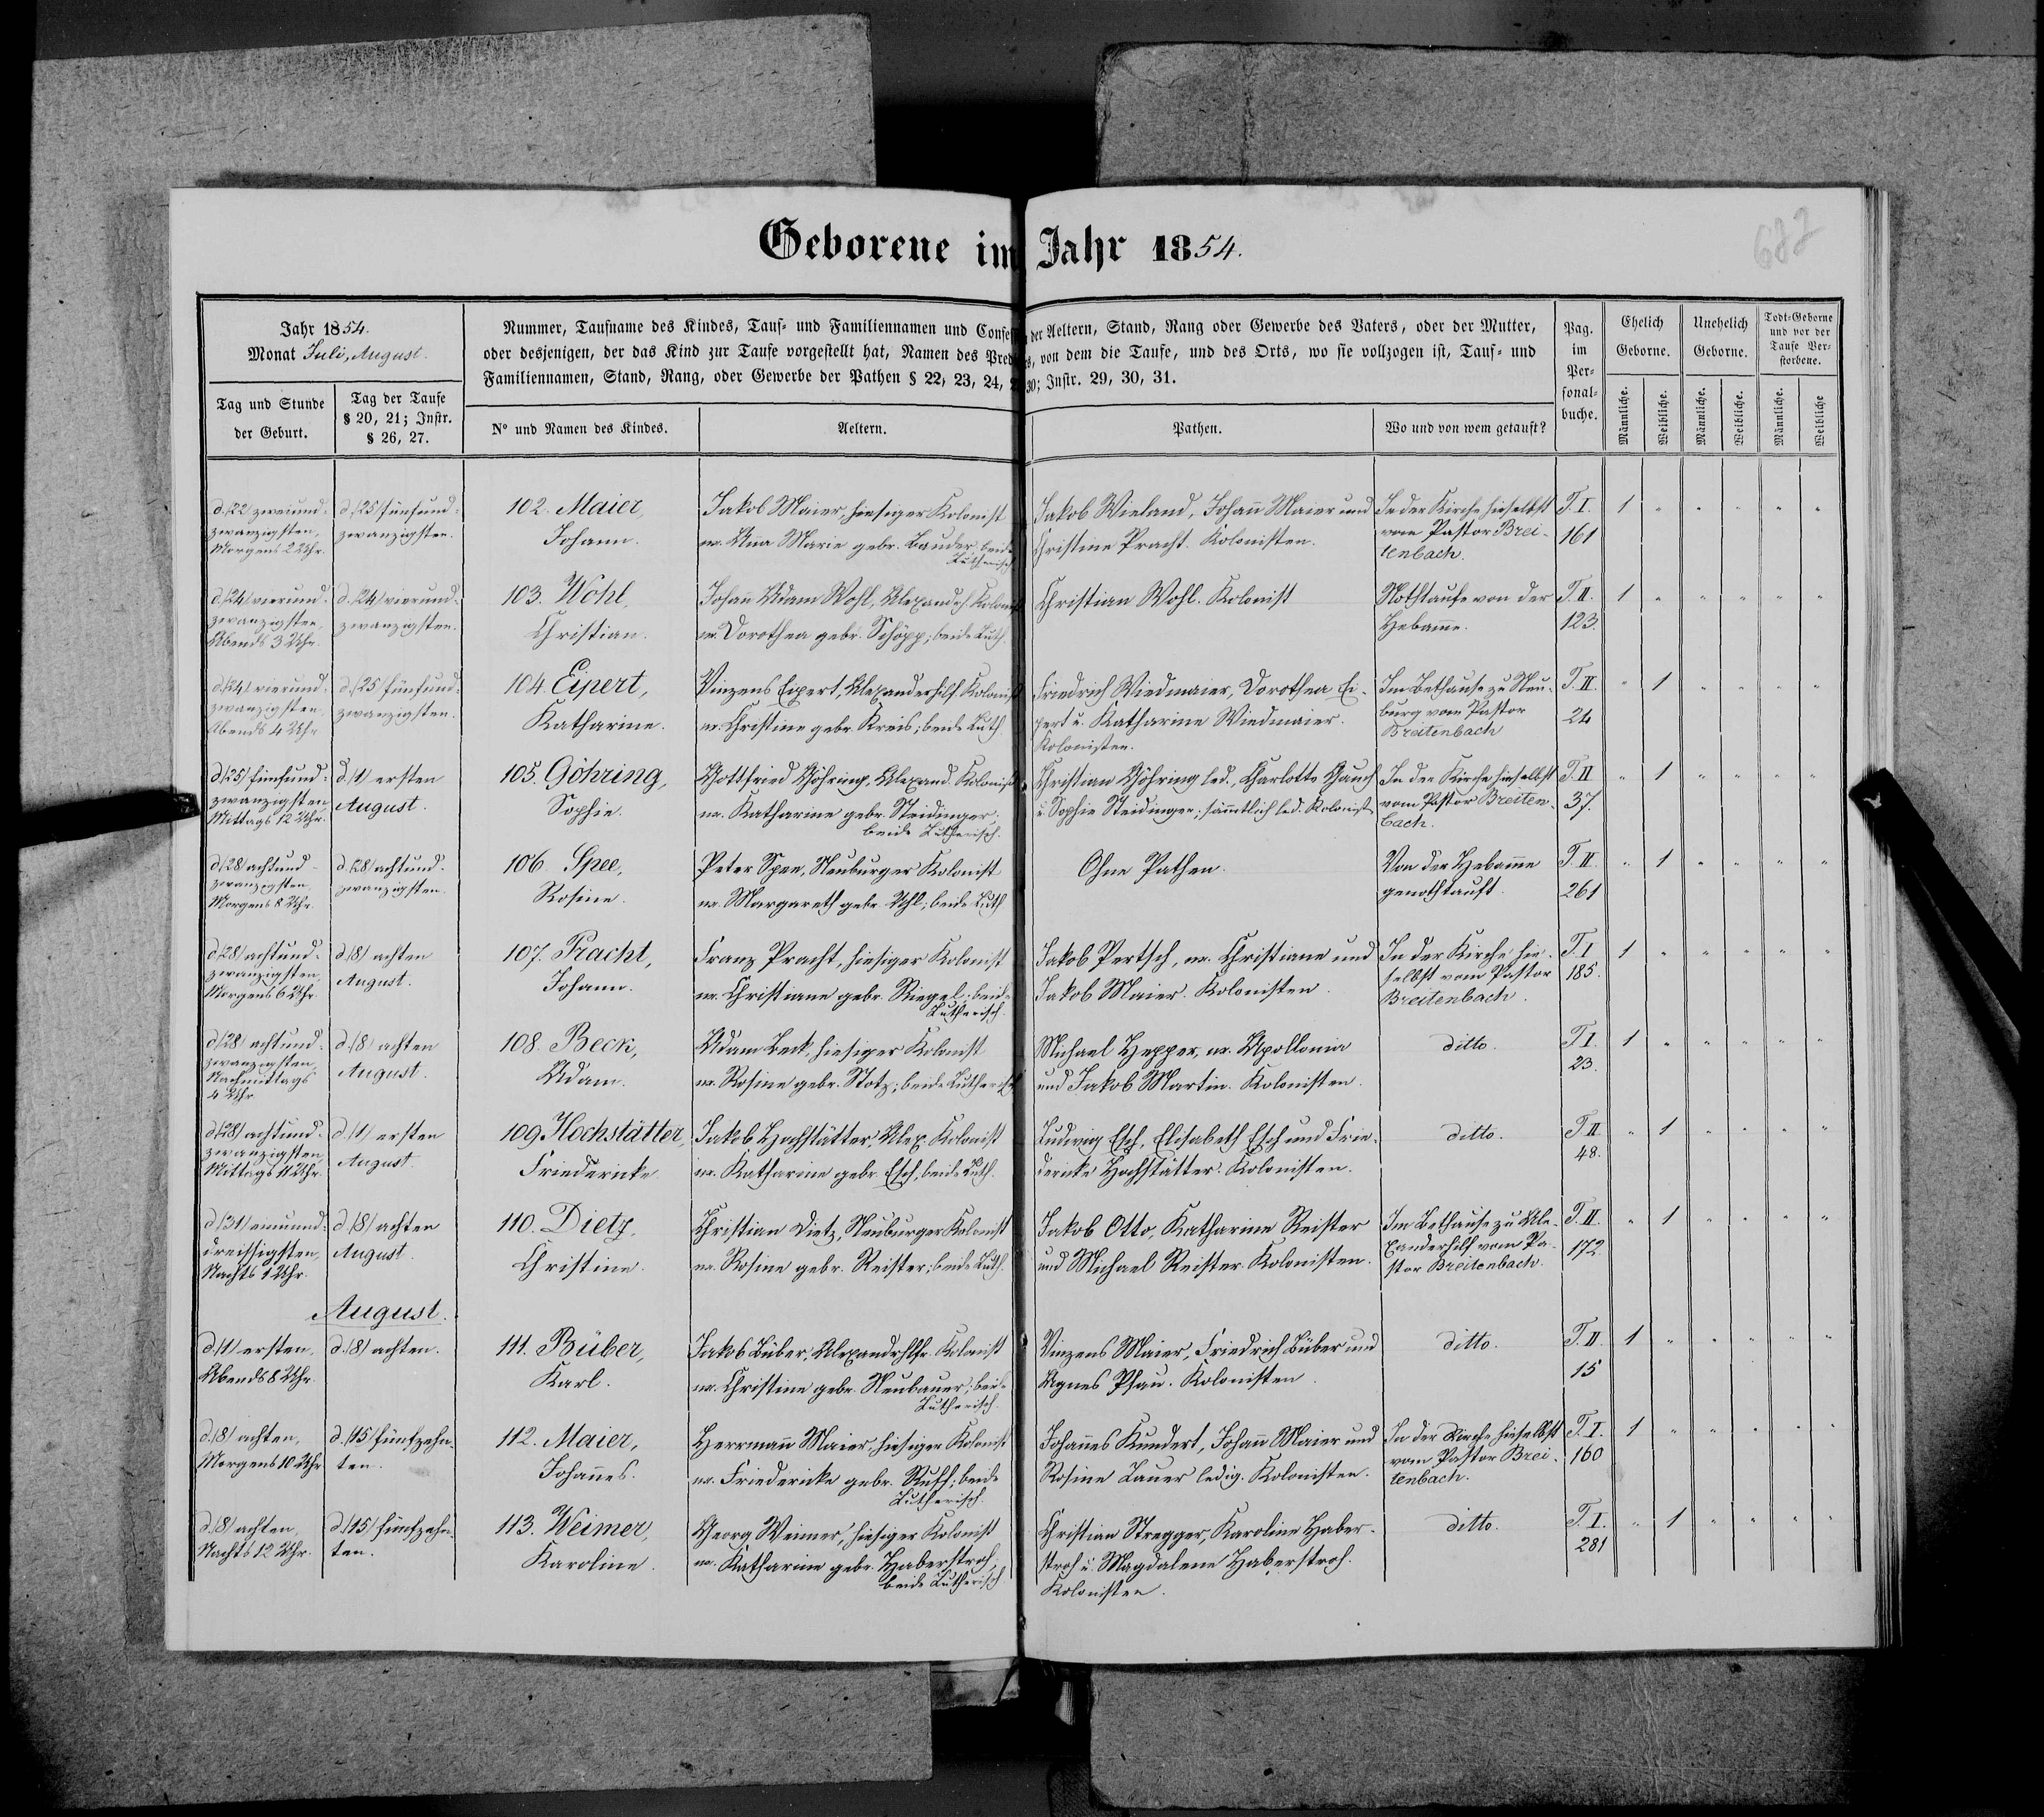 Geborene im Jahr 1854.
682
Jahr 1854.
Monat Juli, August.
Tag und Stunde
der Geburt.
Tag der Taufe
§ 20, 21; Instr.
§ 26, 27.
Nummer, Taufname des Kindes, Tauf- und Familiennamen und Confess der Aeltern, Stand, Rang oder Gewerbe des Vaters, oder der Mutter,
oder desjenigen, der das Kind zur Taufe vorgestellt hat, Namen des Pred rs, von dem die Taufe, und des Orts, wo sie vollzogen ist, Tauf- und
Familiennamen, Stand, Rang, oder Gewerbe der Pathen § 22, 23, 24, 30; Instr. 29, 30, 31.
No und Namen des Kindes.
Aeltern.
Pathen.
Wo und von wem getauft?
Pag.
im
Per-
sonal-
buche.
Ehelich
Geborne.
Unehelich
Geborne.
Todt-Geborne
und vor der
Taufe Ver-
storbene.
Männliche.
Weibliche.
Männliche.
Weibliche.
Männliche.
Weibliche
d. /22/ zweiund-
zwanzigsten,
Morgens 2 Uhr.
d. /25/ fünfund-
zwanzigsten.
102. Maier,
Johann.
Jakob Maier, hiesiger Kolonist
ux. Ana Marie gebr. Bauder, beide
Lutherisch
Jakob Wieland, Johann Maier und
Christine Pracht. Kolonisten.
In der Kirche hieselbst
vom Pastor Brei-
tenbach.
T. I.
161
1
d. /24/ vierund-
zwanzigsten,
Abends 3 Uhr.
d. /24/ vierund-
zwanzigsten.
103. Wohl,
Christian.
Johann Adam Wohl, Alexandrh. Kolonist
ux. Dorothea gebr. Schöpp; beide Luth.
Christian Wohl. Kolonist
Nothtaufe von der
Hebame.
T. II.
123.
1
d. /24/ vierund-
zwanzigsten,
Abends 4 Uhr
d. /25/ fünfund-
zwanzigsten.
104. Eipert,
Katharine.
Vinzens Eipert, Alexanderhilf Kolonist
ux. Christine gebr. Kreis; beide Luth.
Friedrich Wiedmaier, Dorothea Ei-
pert u. Katharine Wiedmaier.
Kolonisten.
Im Bethause zu Neu-
burg vom Pastor
Breitenbach
T. II.
24
1
d. /25/ fünfund-
zwanzigsten
Mittags 12 Uhr.
d. /1/ ersten
August.
105. Göhring,
Sophie.
Gottfried Göhring, Alexand. Kolonist
ux. Katharine gebr. Steidinger,
beide Lutherisch.
Christian Göhring led., Charlotte Hauch
u. Sophie Steidinger; sämmtlich led. Kolonist
In der Kirche hieselbst
vom Pastor Breiten-
bach.
T. II
37.
1
d. /28/ achtund-
zwanzigsten,
Morgens 8 Uhr.
d. /28/ achtund-
zwanzigsten.
106. Spee,
Rosine.
Peter Spee, Neuburger Kolonist
ux. Margareth gebr. Uhl, beide Luth
Ohne Pathen.
Von der Hebamme
genothtauft.
T. II.
261
1
d. /28/ achtund-
zwanzigsten,
Morgens 6 Uhr.
d. /8/ achten
August.
107. Pracht,
Johann.
Franz Pracht, hiesiger Kolonist
ux. Christiane gebr. Riegel, beide
Lutherisch.
Jakob Pertsch, ux. Christiane und
Jakob Maier. Kolonisten.
In der Kirche hie-
selbst vom Pastor
Breitenbach.
T. I
185.
1
d. /28/ achtund-
zwanzigsten,
Nachmittags
4 Uhr
d. /8/ achten
August.
108. Beck,
Adam.
Adam Beck, hiesiger Kolonist
ux. Rosine gebr. Stotz; beide Lutherisch
Michael Hepper, ux. Apollonia
und Jakob Martin. Kolonisten.
ditto.
T. I.
23.
1
d. /28/ achtund-
zwanzigsten
Mittags 11 Uhr.
d. /1/ ersten
August.
109. Hochstätter,
Friedericke.
Jakob Hochstätter, Alex. Kolonist
ux. Katharine gebr. Esch, beide Luth.
Ludwig Esch, Elisabeth Esch und Frie-
dericke Hochstätter. Kolonisten.
ditto.
T. II
48.
1
d. /31/ einund-
dreissigsten,
Nachts 1 Uhr.
d. /8/ achten
August
110. Dietz,
Christine.
Christian Dietz, Neuburger Kolonist
ux. Rosine gebr. Reister; beide Luth.
Jakob Otto, Katharine Reister
und Michael Reister. Kolonisten.
Im Bethause zu Ale-
xanderhilf vom Pa-
stor Breitenbach.
T. II.
172.
1
August.
d. /1/ ersten,
Abends 8 Uhr.
d. /8/ achten.
111. Büber,
Karl.
Jakob Büber, Alexandrhlfr. Kolonist
ux. Christine gebr. Neubauer; beide
Lutherisch.
Vinzens Maier, Friedrich Büber und
Agnes Pfau. Kolonisten.
ditto.
T. II.
15
1
d. /8/ achten,
Morgens 10 Uhr
d. /15/ fünfzehn-
ten.
112. Maier,
Johannes.
Herrmann Maier, hiesiger Kolonist
ux. Friedericke gebr. Ruff; beide
Lutherisch.
Johannes Kundert, Johann Maier und
Rosine Lauer ledig. Kolonisten.
In der Kirche hieselbst
vom Pastor Brei-
tenbach.
T. I.
160
1
d. /8/ achten,
Nachts 12 Uhr.
d. /15/ fünfzehn-
ten.
113. Weimer,
Karoline.
Georg Weimer, hiesiger Kolonist
ux. Katharine gebr. Haberstroh,
beide Lutherisch
Christian Stregger, Karoline Haber-
stroh u. Magdalene Haberstroh.
Kolonisten.
ditto.
T. I.
281
1